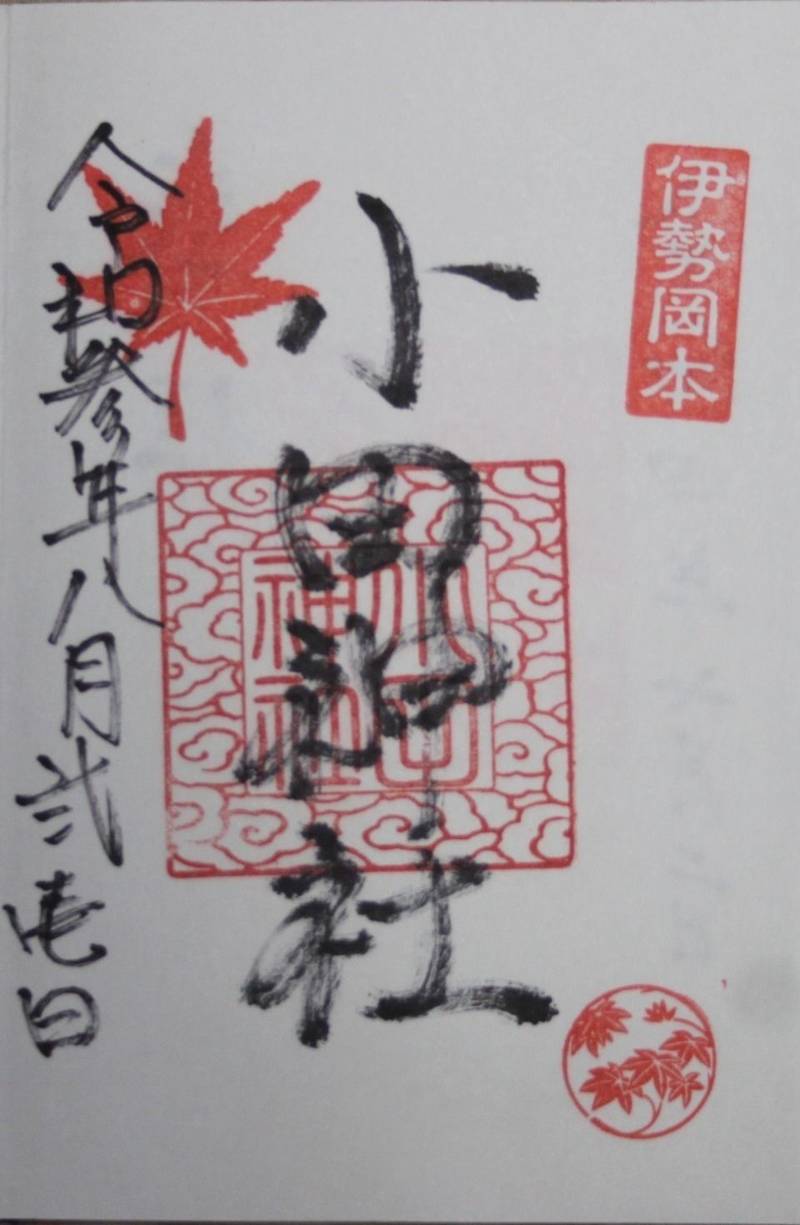 伊勢岡本
小田神社
小田
神社
令和参年八月弐壱日